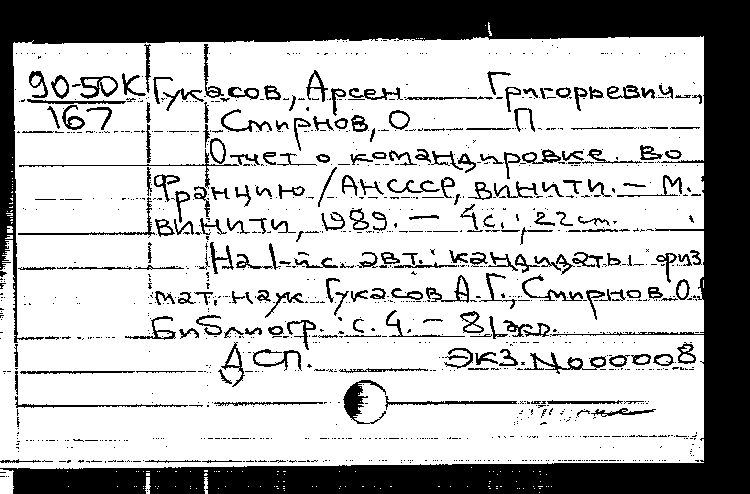 90-50К Гукасов, Арсен Григорьевич,
167 Смирнов, О П
Отчет о командировке во
Францию / АНСССР, ВИНИТИ. – М.:
ВИНИТИ, 1989. – 4с.; 22 cm.
На 1-й с. авт.: кандидаты физ
мат. наук Гукасов А.Г., Смирнов О.
Библиогр.: с. 4. – 81 экз.
ДСП. Экз. № 000008